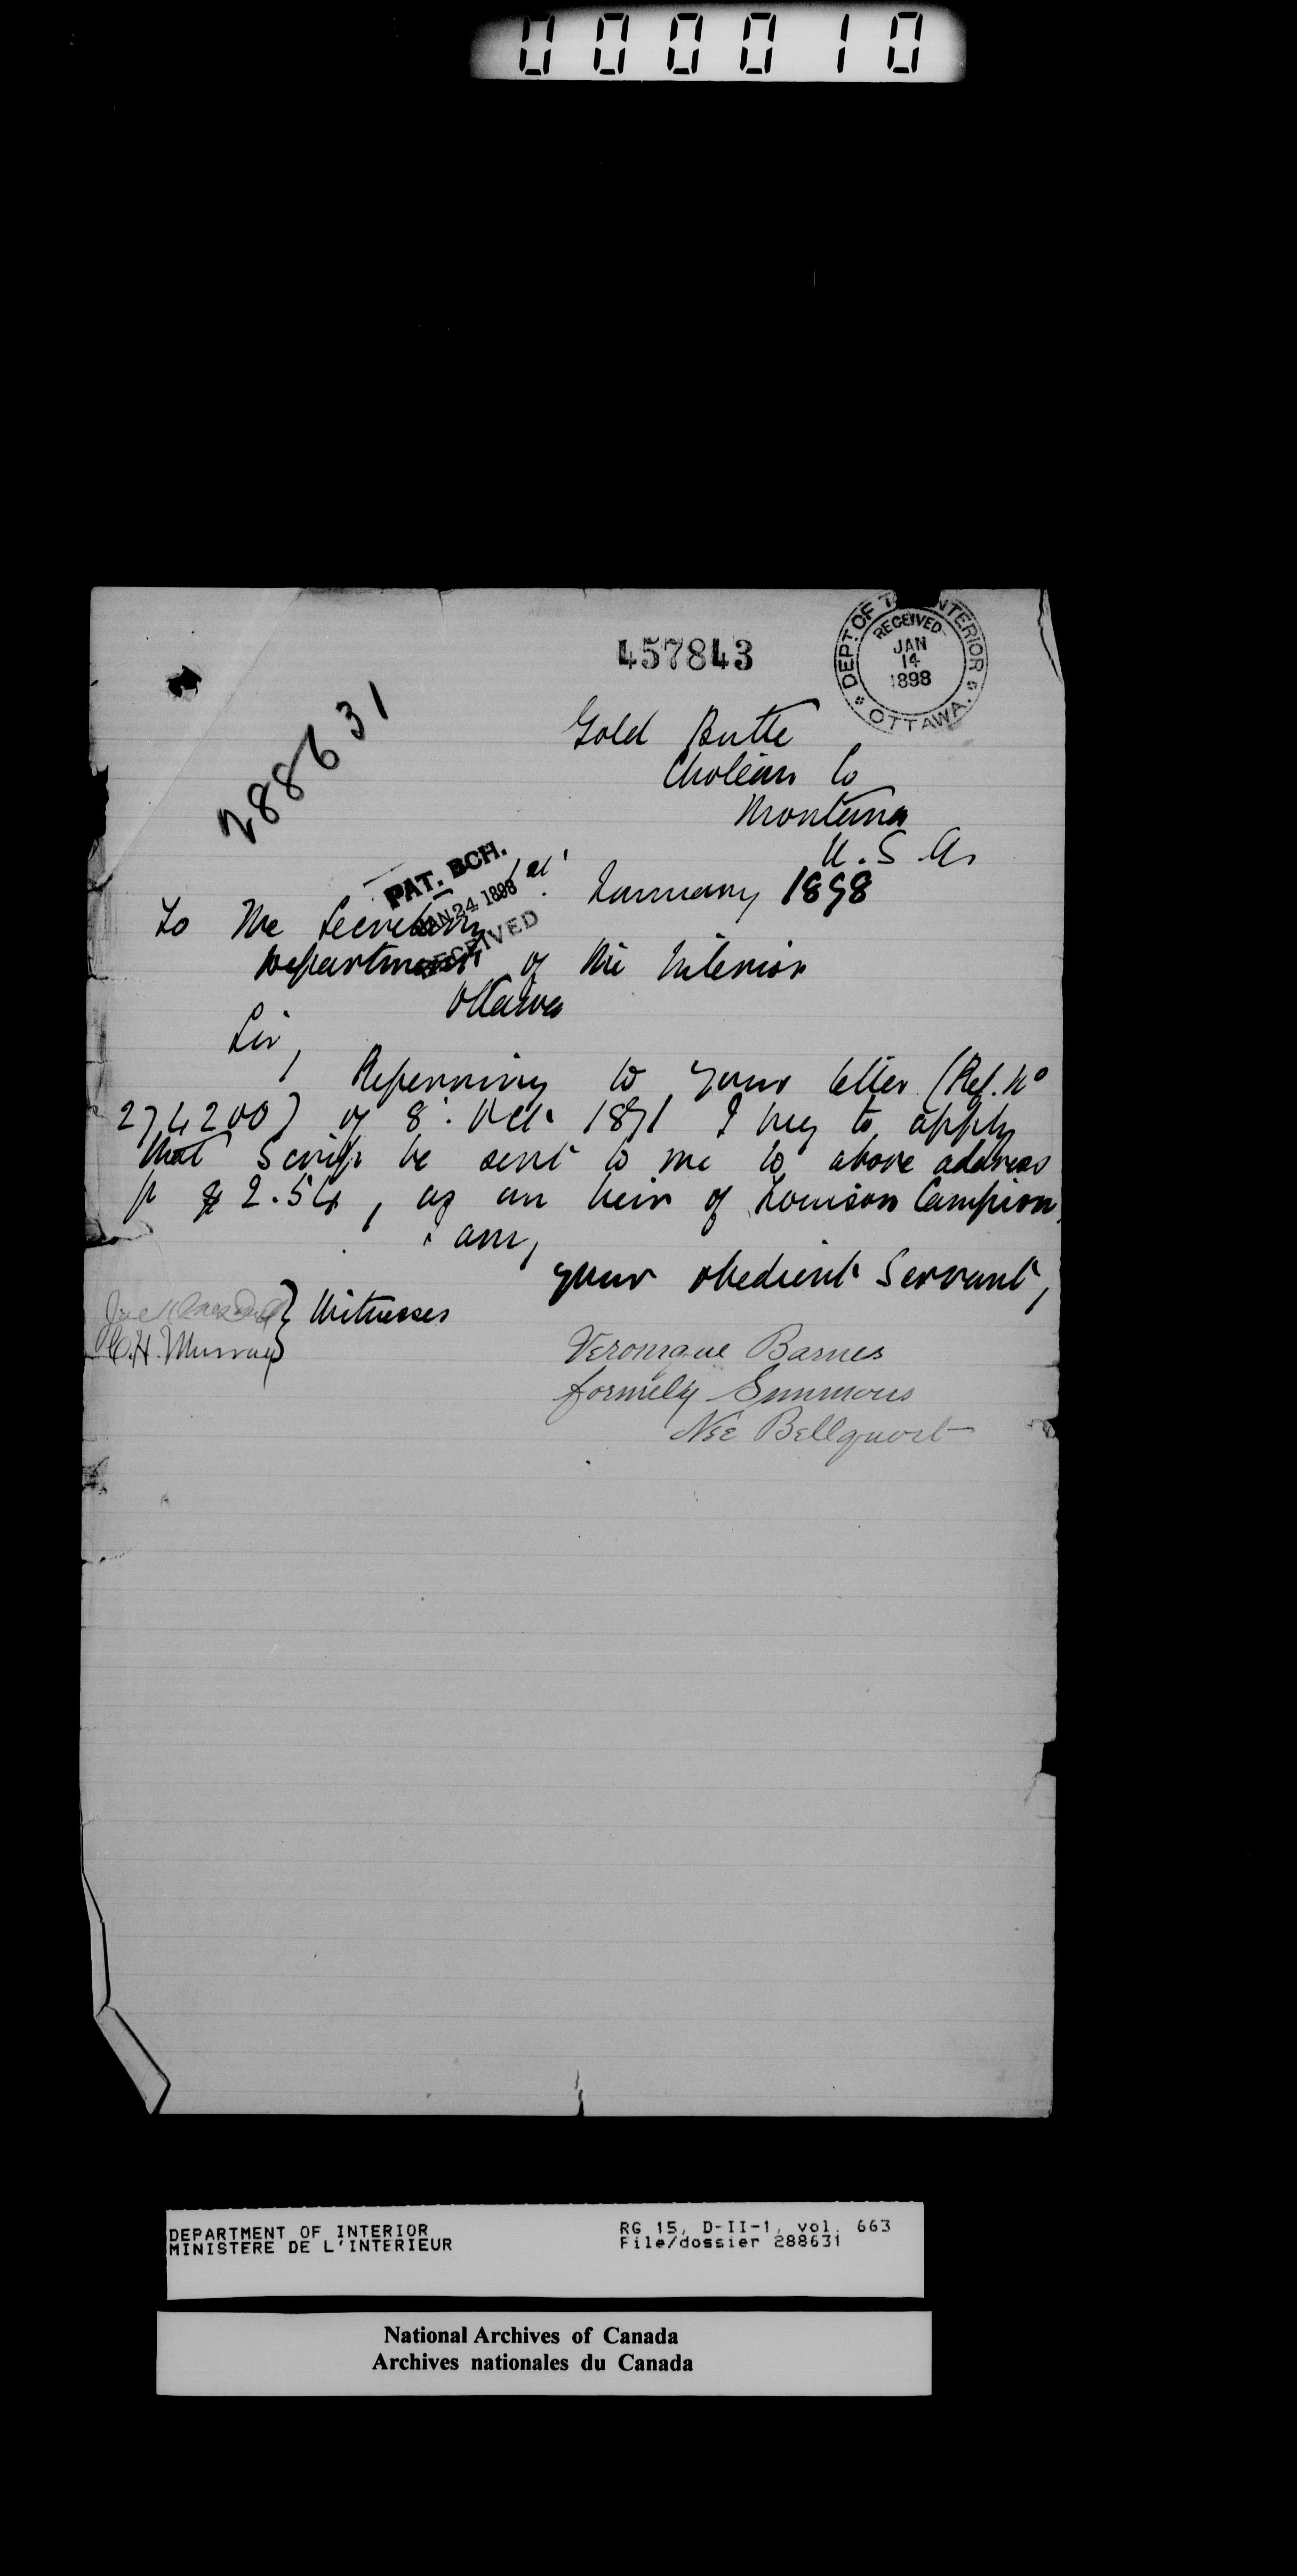 000010
457843
DEPT. OF THE INTERIOR
RECEIVED
JAN
14
1898
OTTAWA.
288631
Gold Butte
Choteau Co
Montana
U.S.A.
PAT. BCH.
JAN 24 1898
RECEIVED
1st January 1898
To the Secretary
Department of the Interior
Ottawa
Sir,
Referring to your letter (Ref. No
274200) of 8. Oct. 1891 I beg to apply
that Scrip be sent to me to above address
for $2.54, as an heir of Louison Campion.
I am,
your obedient Servant,
} Witnesses
C.H. Murray
Veronique Barnes
formely Simmons
Née Bellgued
DEPARTMENT OF INTERIOR
MINISTERE DE L'INTERIEUR
RG 15, D-II-1, vol. 663
File/dossier 288631
National Archives of Canada
Archives nationales du Canada